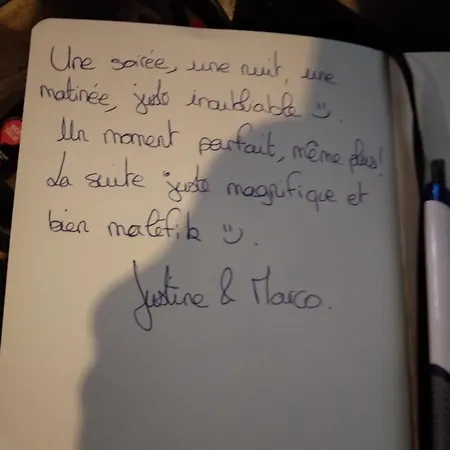 Une soirée, une nuit, une
matinée, juste inoubliable :).
Un moment parfait, même plus!
La suite juste magnifique et
bien maléfik :).
Justine & Marco.